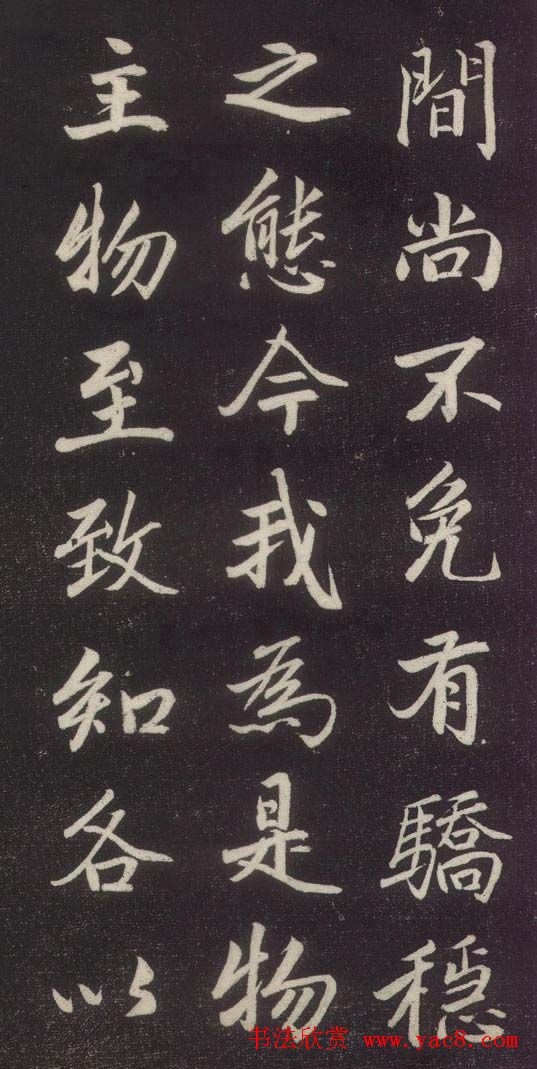 間尚不免有驕穩
之態今我為是物
主物至致知各以
书法欣赏 www.yac8.com